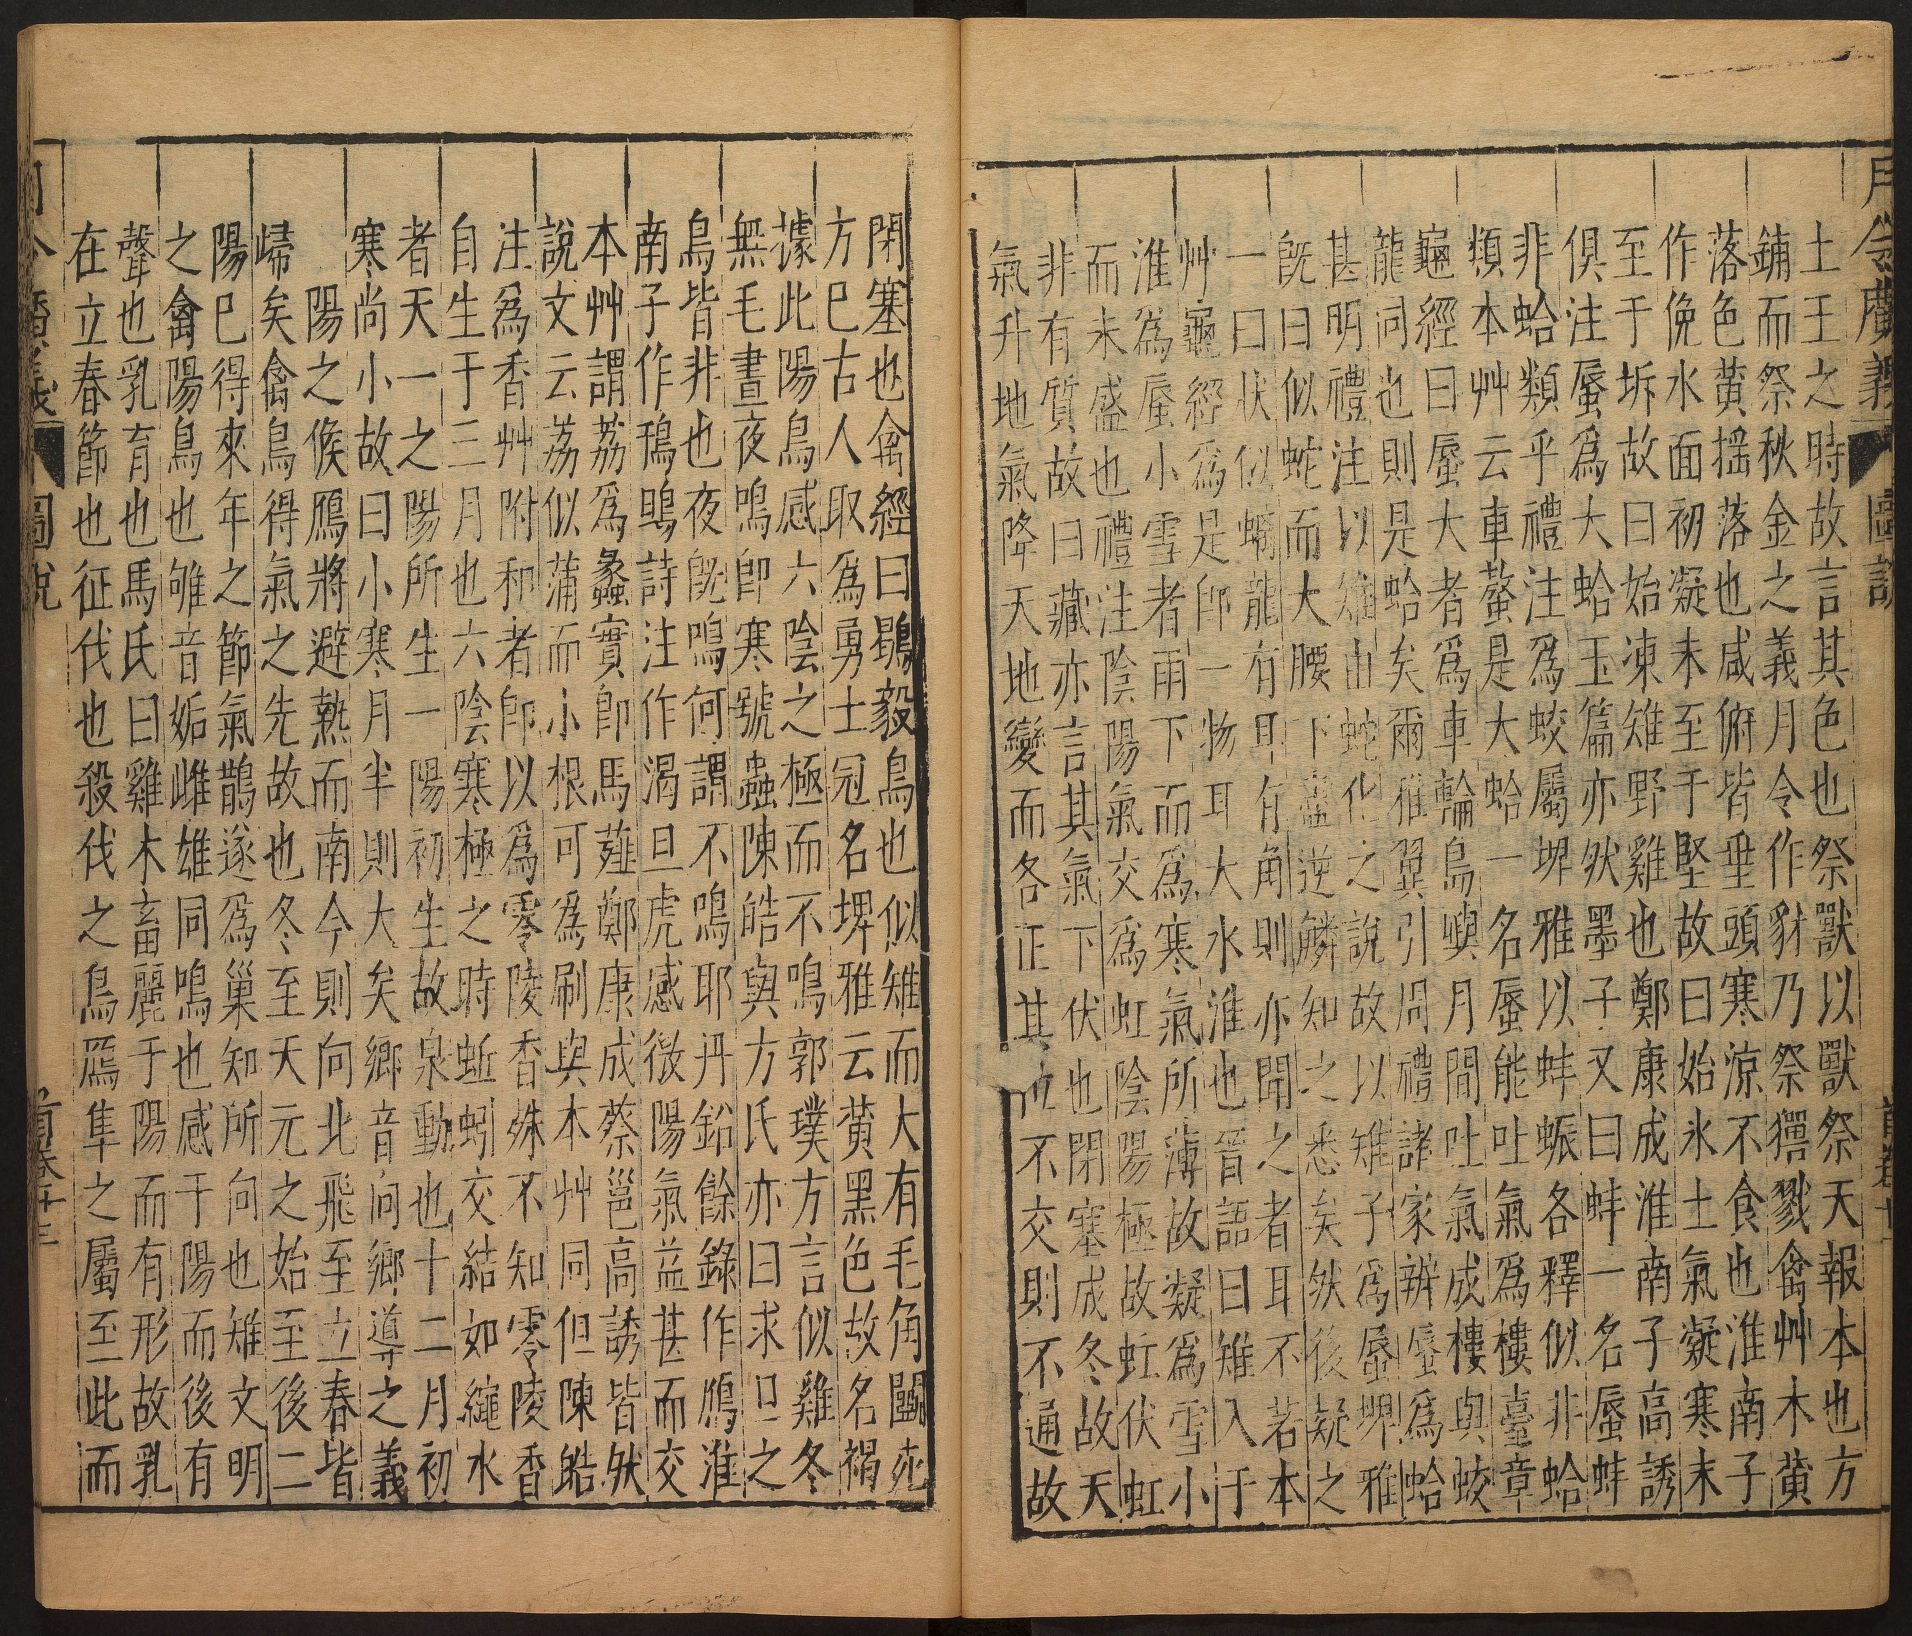 月令廣義 圖說 首卷
土王之時故言其色也祭獸以獸祭天報本也方
鋪而祭秋金之義月令作豺乃祭獸戮禽艸木黃
落色黄揺落也咸俯皆垂頭寒涼不食也淮南子
作俛水面初凝未至于堅故曰始氷土氣凝寒未
至于坼故曰始凍雉野雞也鄭康成淮南子高誘
俱注蜃為大蛤玉篇亦然墨子又曰蚌一名蜃蚌
非蛤類乎禮注為蛟屬埤雅以蚌蜃各釋似非蛤
類本艸云車螯是大蛤一名蜃能吐氣為樓臺章
龜經曰蜃大者為車輪鳥嶼月間吐氣成樓與蛟
龍同也則是蛤矣爾雅翼引周禮諸家辨蜃為蛤
甚明禮注以雉由蛇化之說故以雉子為蜃埤雅
旣曰似蛇而大腰下盡逆鱗知之悉矣然後疑之
一曰狀似螭龍有耳有角則亦聞之者耳不若本
艸龜經為是卽一物耳大水淮也晉語曰雉入于
淮為蜃小雪者雨下而為寒氣所薄故凝為雪小
而未盛也禮注陰陽氣交為虹陰陽極故虹伏虹
非有質故曰藏亦言其氣下伏也閉塞成冬故天
氣升地氣降天地變而各正其位不交則不通故
閉塞也禽經曰鶡毅鳥也似雉而大有毛角鬭死
方巳古人取為勇士冠名埤雅云黄黑色故名褐
據此陽鳥感六陰之極而不鳴郭璞方言似雞冬
無毛晝夜鳴卽寒號蟲陳皓與方氏亦曰求旦之
鳥皆非也夜旣鳴何謂不鳴耶丹鉛餘錄作鴈淮
南子作鳱鴠詩注作渴旦虎感微陽氣益甚而交
本艸謂荔為蠡實卽馬薤鄭康成蔡邕高誘皆然
說文云荔似蒲而小根可為刷與本艸同但陳皓
注為香艸附和者卽以為零陵香殊不知零陵香
自生于三月也六陰寒極之時蚯蚓交結如繩水
者天一之陽所生一陽初生故泉動也十二月初
寒尚小故曰小寒月半則大矣鄉音向鄉導之義
陽之候鴈將避熱而南今則向北飛至立春皆
歸矣禽鳥得氣之先故也冬至天元之始至後二
陽巳得來年之節氣鵲遂為巢知所向也雉文明
之禽陽鳥也雊音姤雌雄同鳴也感于陽而後有
聲也乳育也馬氏曰雞木畜麗于陽而有形故乳
在立春節也征伐也殺伐之鳥鷹隼之屬至此而
月令廣義 圖說 首卷十三